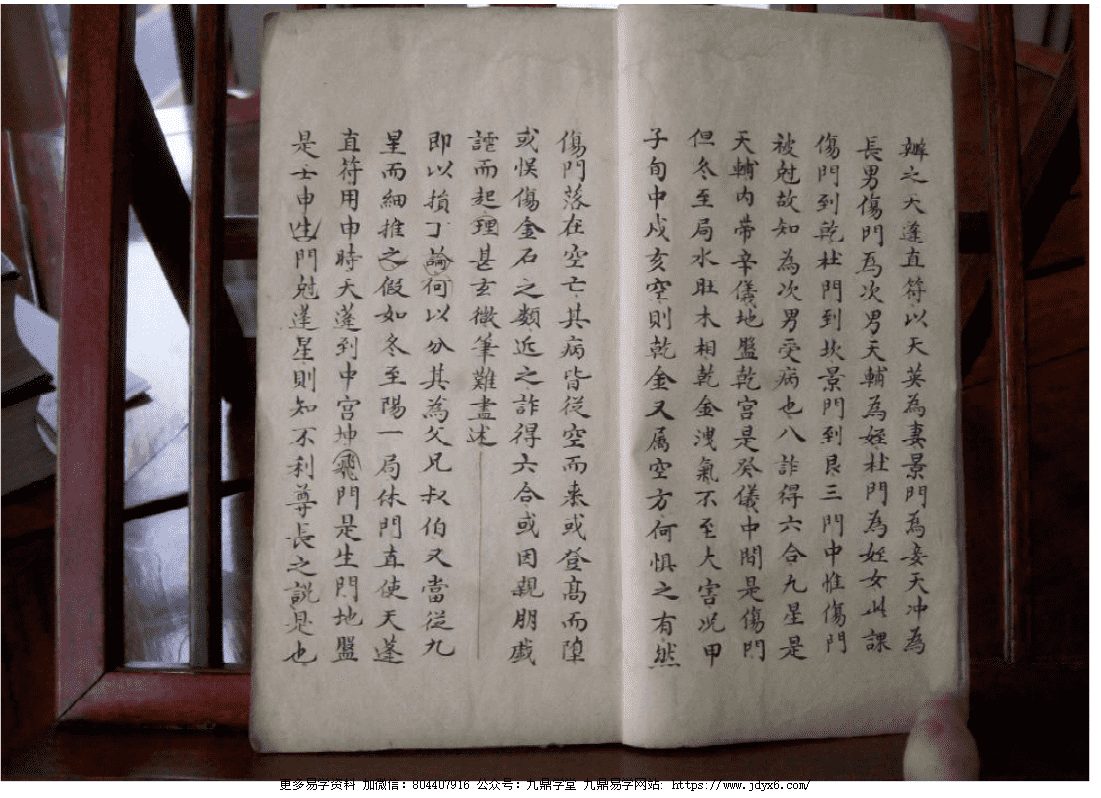 辨之天蓬直符以天英為妻景門為妾天冲為
長男傷門為次男天輔為姪杜門為姪女此課
傷門到乾杜門到坎景門到艮三門中惟傷門
被尅故知為次男受病也八詐得六合九星是
天輔內带辛儀地盤乾宫是癸儀中間是傷門
但冬至局水肚木相乾金洩氣不至大害况甲
子旬中戍亥空則乾金又属空方何惧之有然
傷門落在空亡其病皆從空而来或登高而墮
或悞傷金石之類近之詐得六合或因親朋戯
謔而起理甚玄微筆難盡述
即以損丁論何以分其為父兄叔伯又當從九
星而細推之假如冬至陽一局休門直使天蓬
直符用申時天蓬到中宫坤飛門是生門地盤
是壬申生門尅蓬星則知不利尊長之説是也
更多易学资料 加微信：804407916 公众号：九鼎学堂 九鼎易学网站: https://www.jdyx6.com/